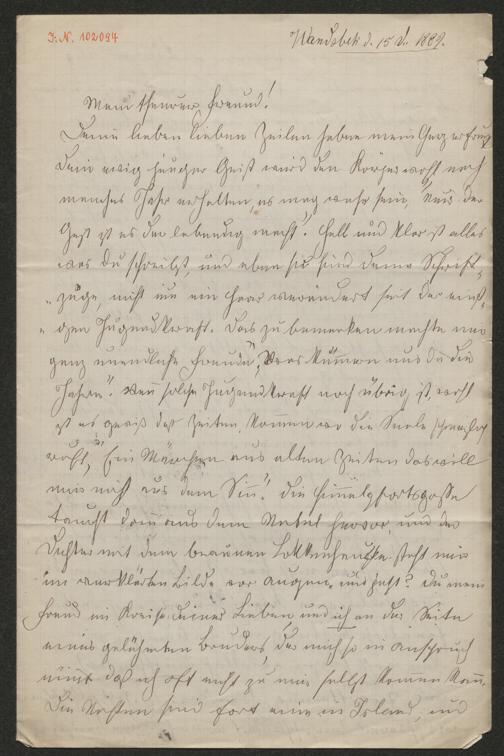 I. N. 102094
Wandsbek d. 15 d. 1889.
Mein theurer Freund!
Deine lieben lieben Zeilen haben mein Herz erfreut
Dein ewig junger Geist wird den Körper wohl noch
manches Jahr erhalten, es mag wahr sein, „Nur der
Geist ist es der lebendig macht“. Hell und klar ist alles
was Du schreibst, und eben so sind Deine Schrift-
züge, nicht um ein Haar verändert seit der einsti-
gen Jugendkraft. Das zu bemerken machte mir
ganz unendliche Freude, „Was kümmern uns da die
Jahre“. Wenn solche Jugendkraft noch übrig ist, wohl
ist es gewiß daß Zeiten kommen wo die Seele schmerzlich
ruft, „Ein Märchen aus alten Zeiten das will
mir nicht aus dem Sinn“. Die
taucht dann aus dem Nebel hervor, und der
Dichter mit dem braunen Lockenhaupte steht mir
im verklärten Bilde vor Augen, und jetzt? Du mein
Freund im Kreise Deiner Lieben, und ich an der Seite
eines gelähmten Bruders, der mich so in Anspruch
nimt daß ich oft nicht zu mir selbst kommen kann.
Die Nichten sind fort eine in Island, und